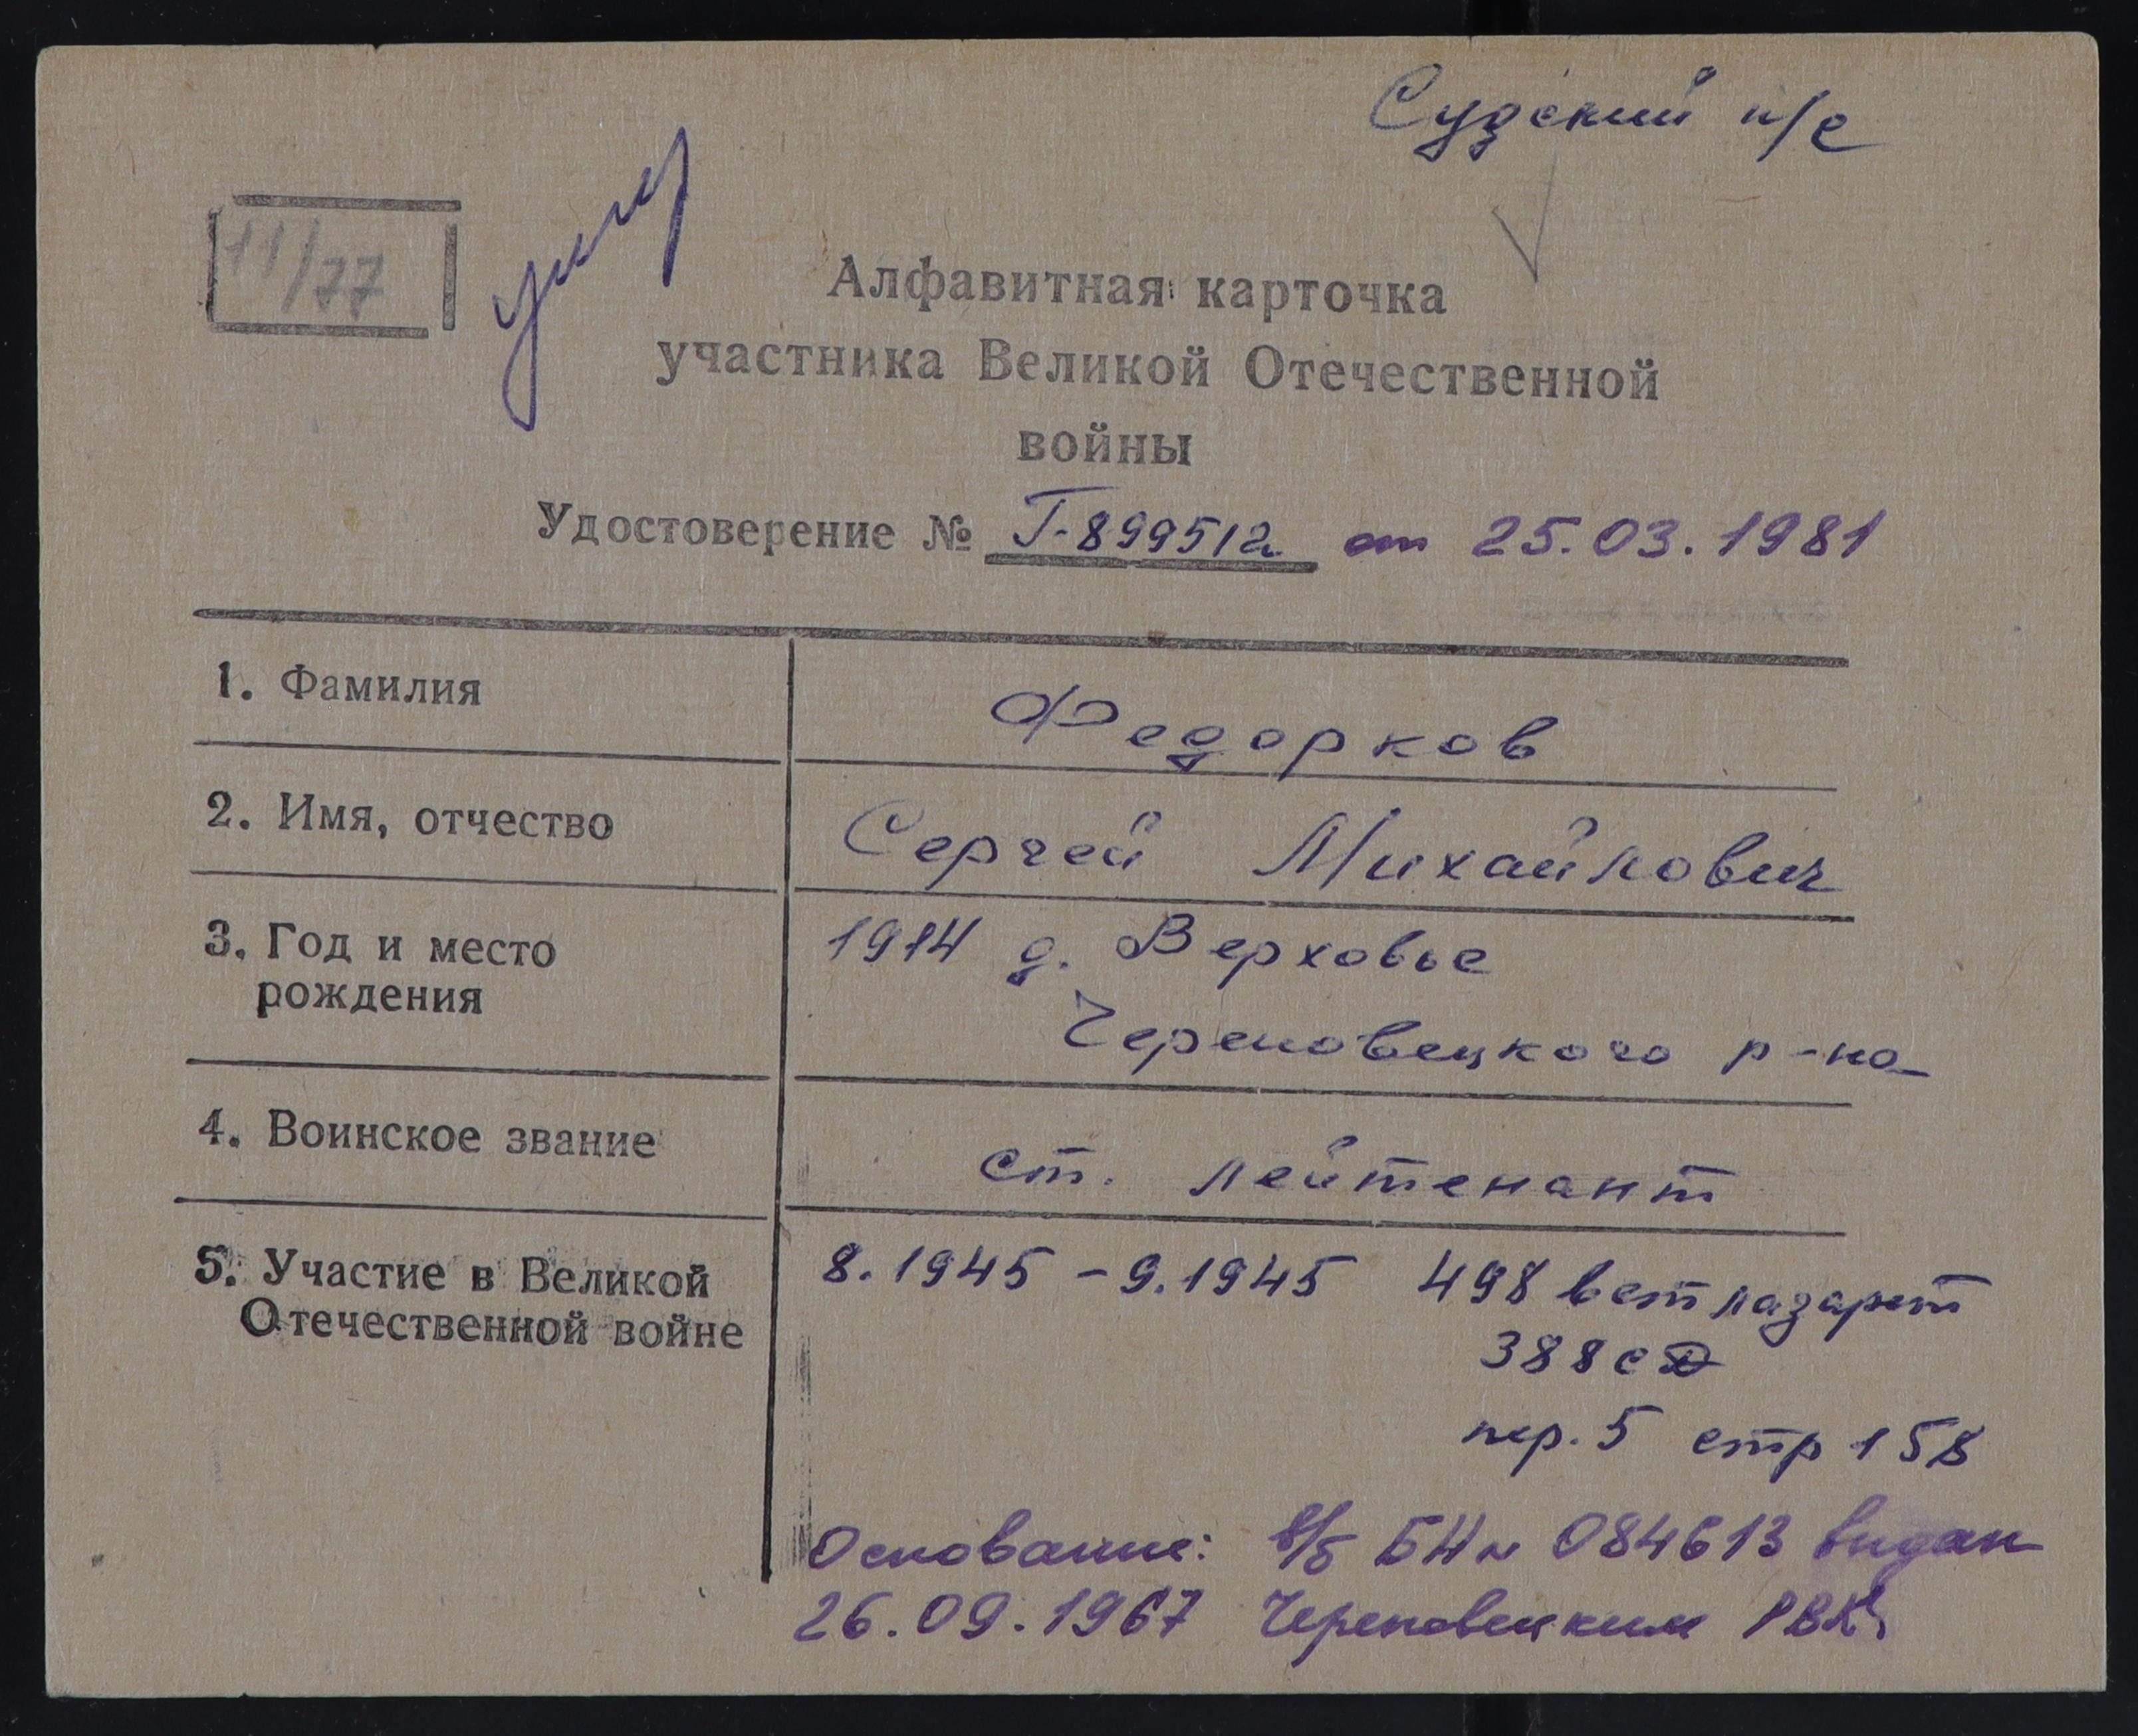 Судский п/с
11/77
умер
Алфавитная карточка
участника Великой Отечественной
войны
Удостоверение № Г-899512 от 25.03.1981
1. Фамилия
Федорков
2. Имя, отчество
Сергей Михайлович
3. Год и место
рождения
1914 д. Верховье
Череповецкого р-на
4. Воинское звание
ст. лейтенант
5. Участие в Великой
Отечественной войне
8.1945 - 9.1945 498 вет лазарет
388 сд
пер. 5 стр 158
Основание: в/б БН № 084613 выдан
26.09.1967 Череповецким РВК